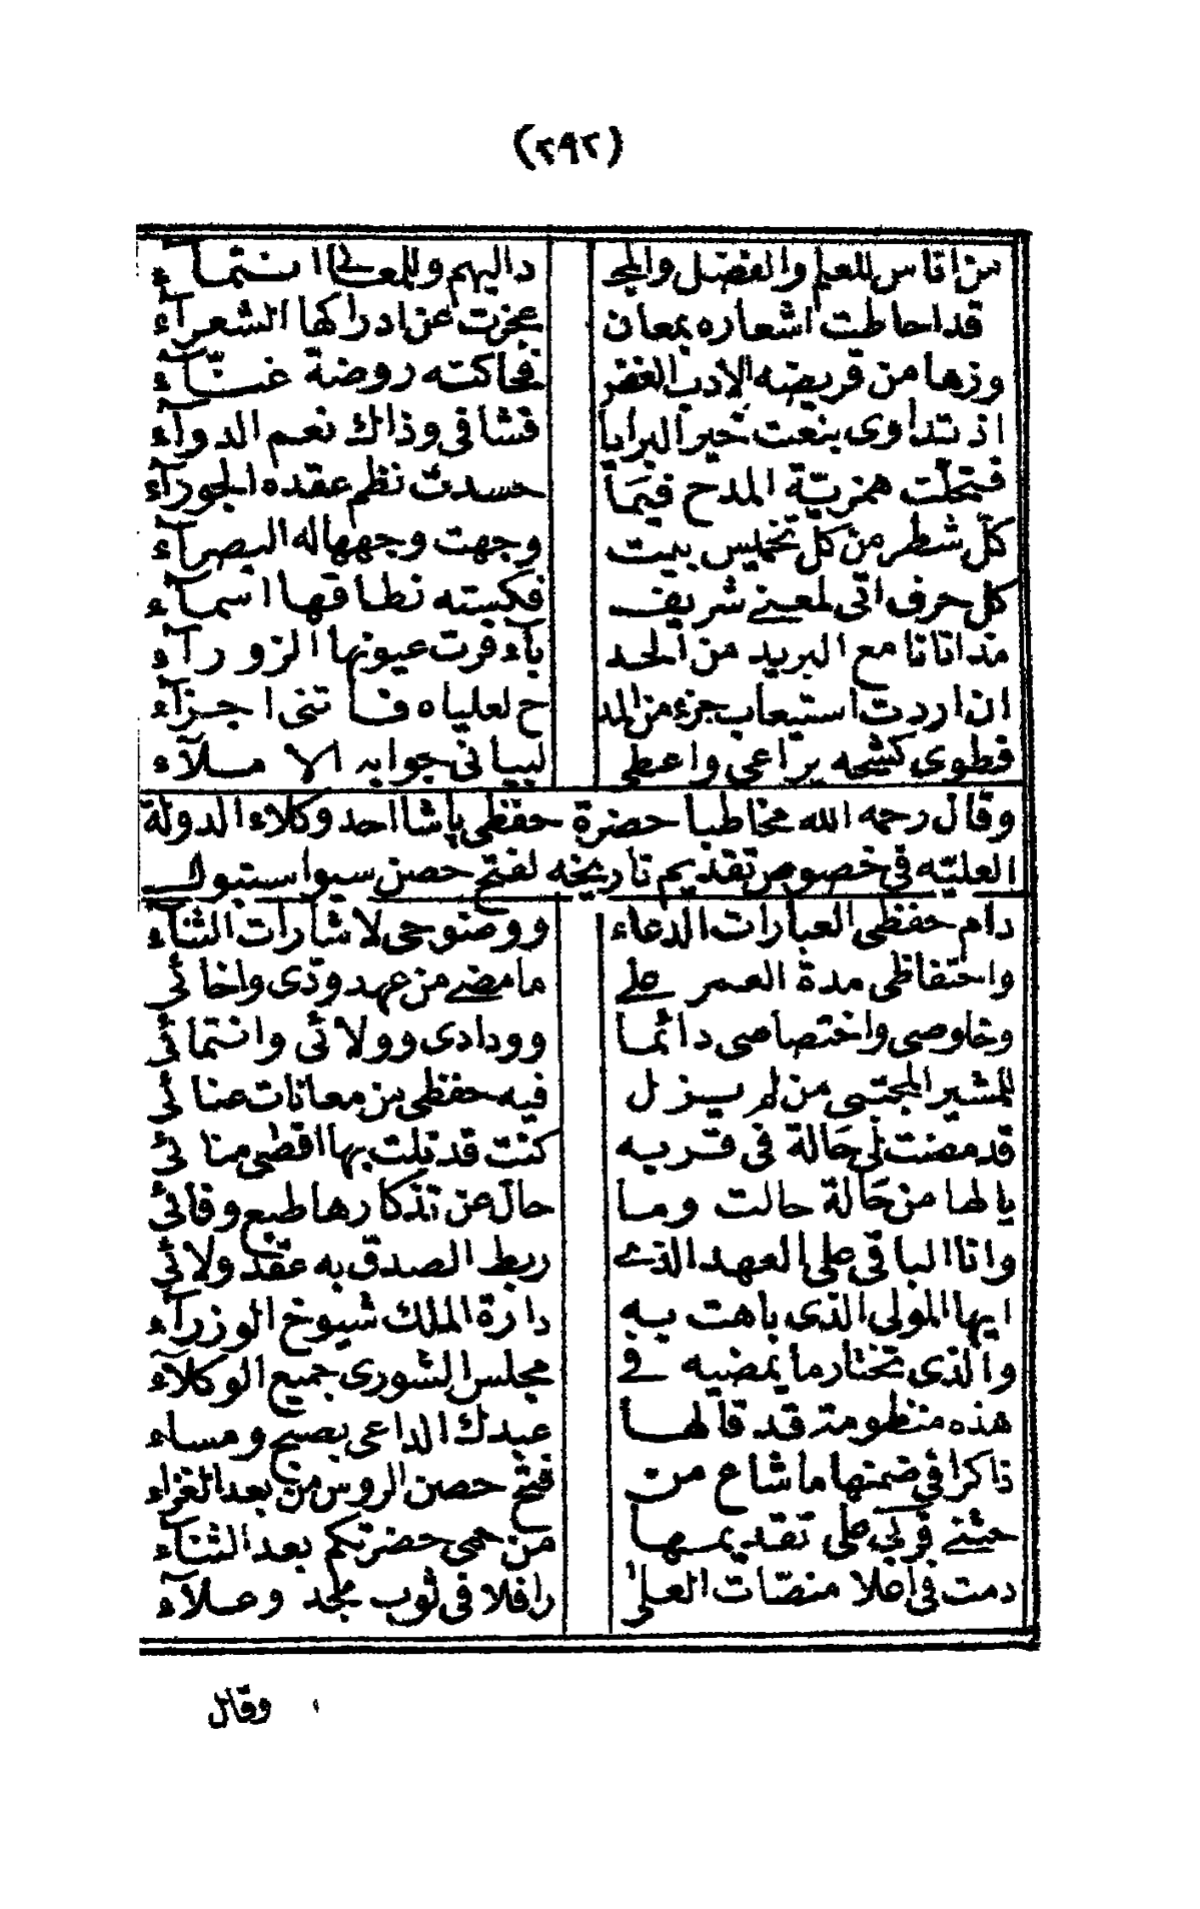 (٢٩٢)
من اناس للعلم والفضل والمجـ داليهم وللمعالى انتمآء
قد احاطت اشعاره بمعان عجزت عن ادراكها الشعرآء
وزها من قريضه الادب الغض فحاكته روضة غنّآء
اذ تداوى بنعت خير البرايا فشافى وذاك نعم الدوآء
فتحلّت همزيّة المدح فيمآ حسدت نظم عقده الجوزآء
كلّ شطر من كلّ تخميس بيت وجهت وجهها له البصرآء
كل حرف اتى لمعنى شريف فكسته نطاقها اسمآء
مذ اتانا مع البريد من الحد بآء قرت عيونها الزورآء
ان اردت استيعاب جزء من المد ح لعلياه فاتنى اجزآء
فطوى كشحه يراعى واعطى لبيانى جوابه الاملآء
وقال رحمه الله مخاطبا حضرة حفظى پاشا احد وكلاء الدولة
العليّه فى خصوص تقديم تاريخه لفتح حصن سيواستبول
دام حفظى العبارات الدعاء ووضوحى لاشارات الثنآء
واحتفاظى مدة العمر على ما مضى من عهد ودّى واخائى
وخلوصى واختصاصى دائما وودادى وولائى وانتمائى
للمشير المجتبى من لم يزل فيه حفظى من معانات عنائى
قد مضت لى حالة فى قربه كنت قد نلت بها اقصى منائى
يالها من حالة حالت وما حال عن تذكارها طبع وفائى
وانا الباقى على العهد الذى ربط الصدق به عقد ولائى
ايها المولى الذى باهت به دارة الملك شيوخ الوزرآء
والذى تختار ما يمضيه فى مجلس الشورى جميع الوكلآء
هذه منظومة قد قالها عبدك الداعى بصبح ومساء
ذاكرا فى ضمنها ما شاع من فتح حصن الروس من بعد الغزاء
حثنى قربى على تقديمها من حمى حضرتكم بعد الثنآء
دمت فى اعلا منصّات العلى رافلا فى ثوب مجد وعلآء
وقال